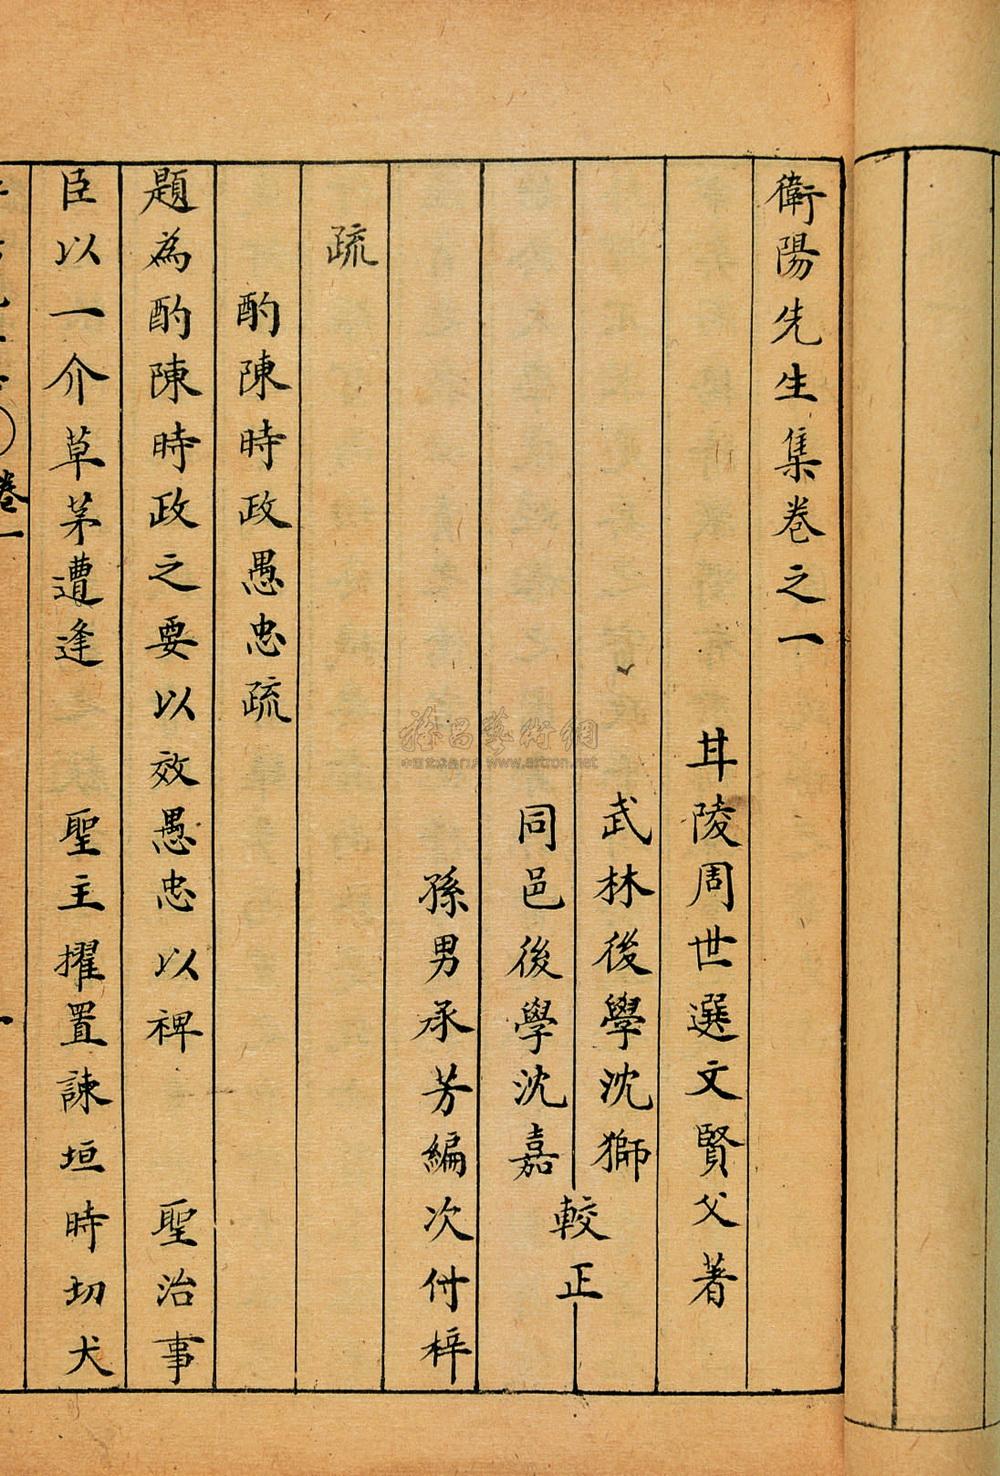 衛陽先生集卷之一
甘陵周世選文賢父著
武林後學沈獅
同邑後學沈嘉
較正
孫男承芳編次付梓
疏
酌陳時政愚忠疏
題為酌陳時政之要以效愚忠以裨 聖治事
臣以一介草茅遭逢 聖主擢置諫垣時切犬
卷一
雅昌藝術網
中国艺术品门户 www.artron.net